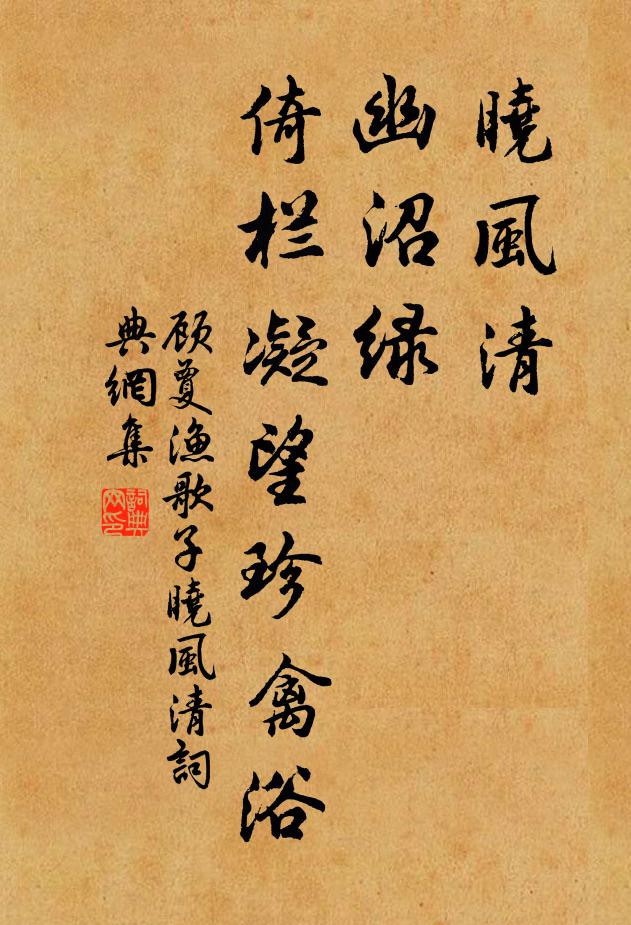 曉風清
幽沼绿
倚栏凝望珍禽浴
顾夐渔歌子曉風清詞
典網集
詞典
网印